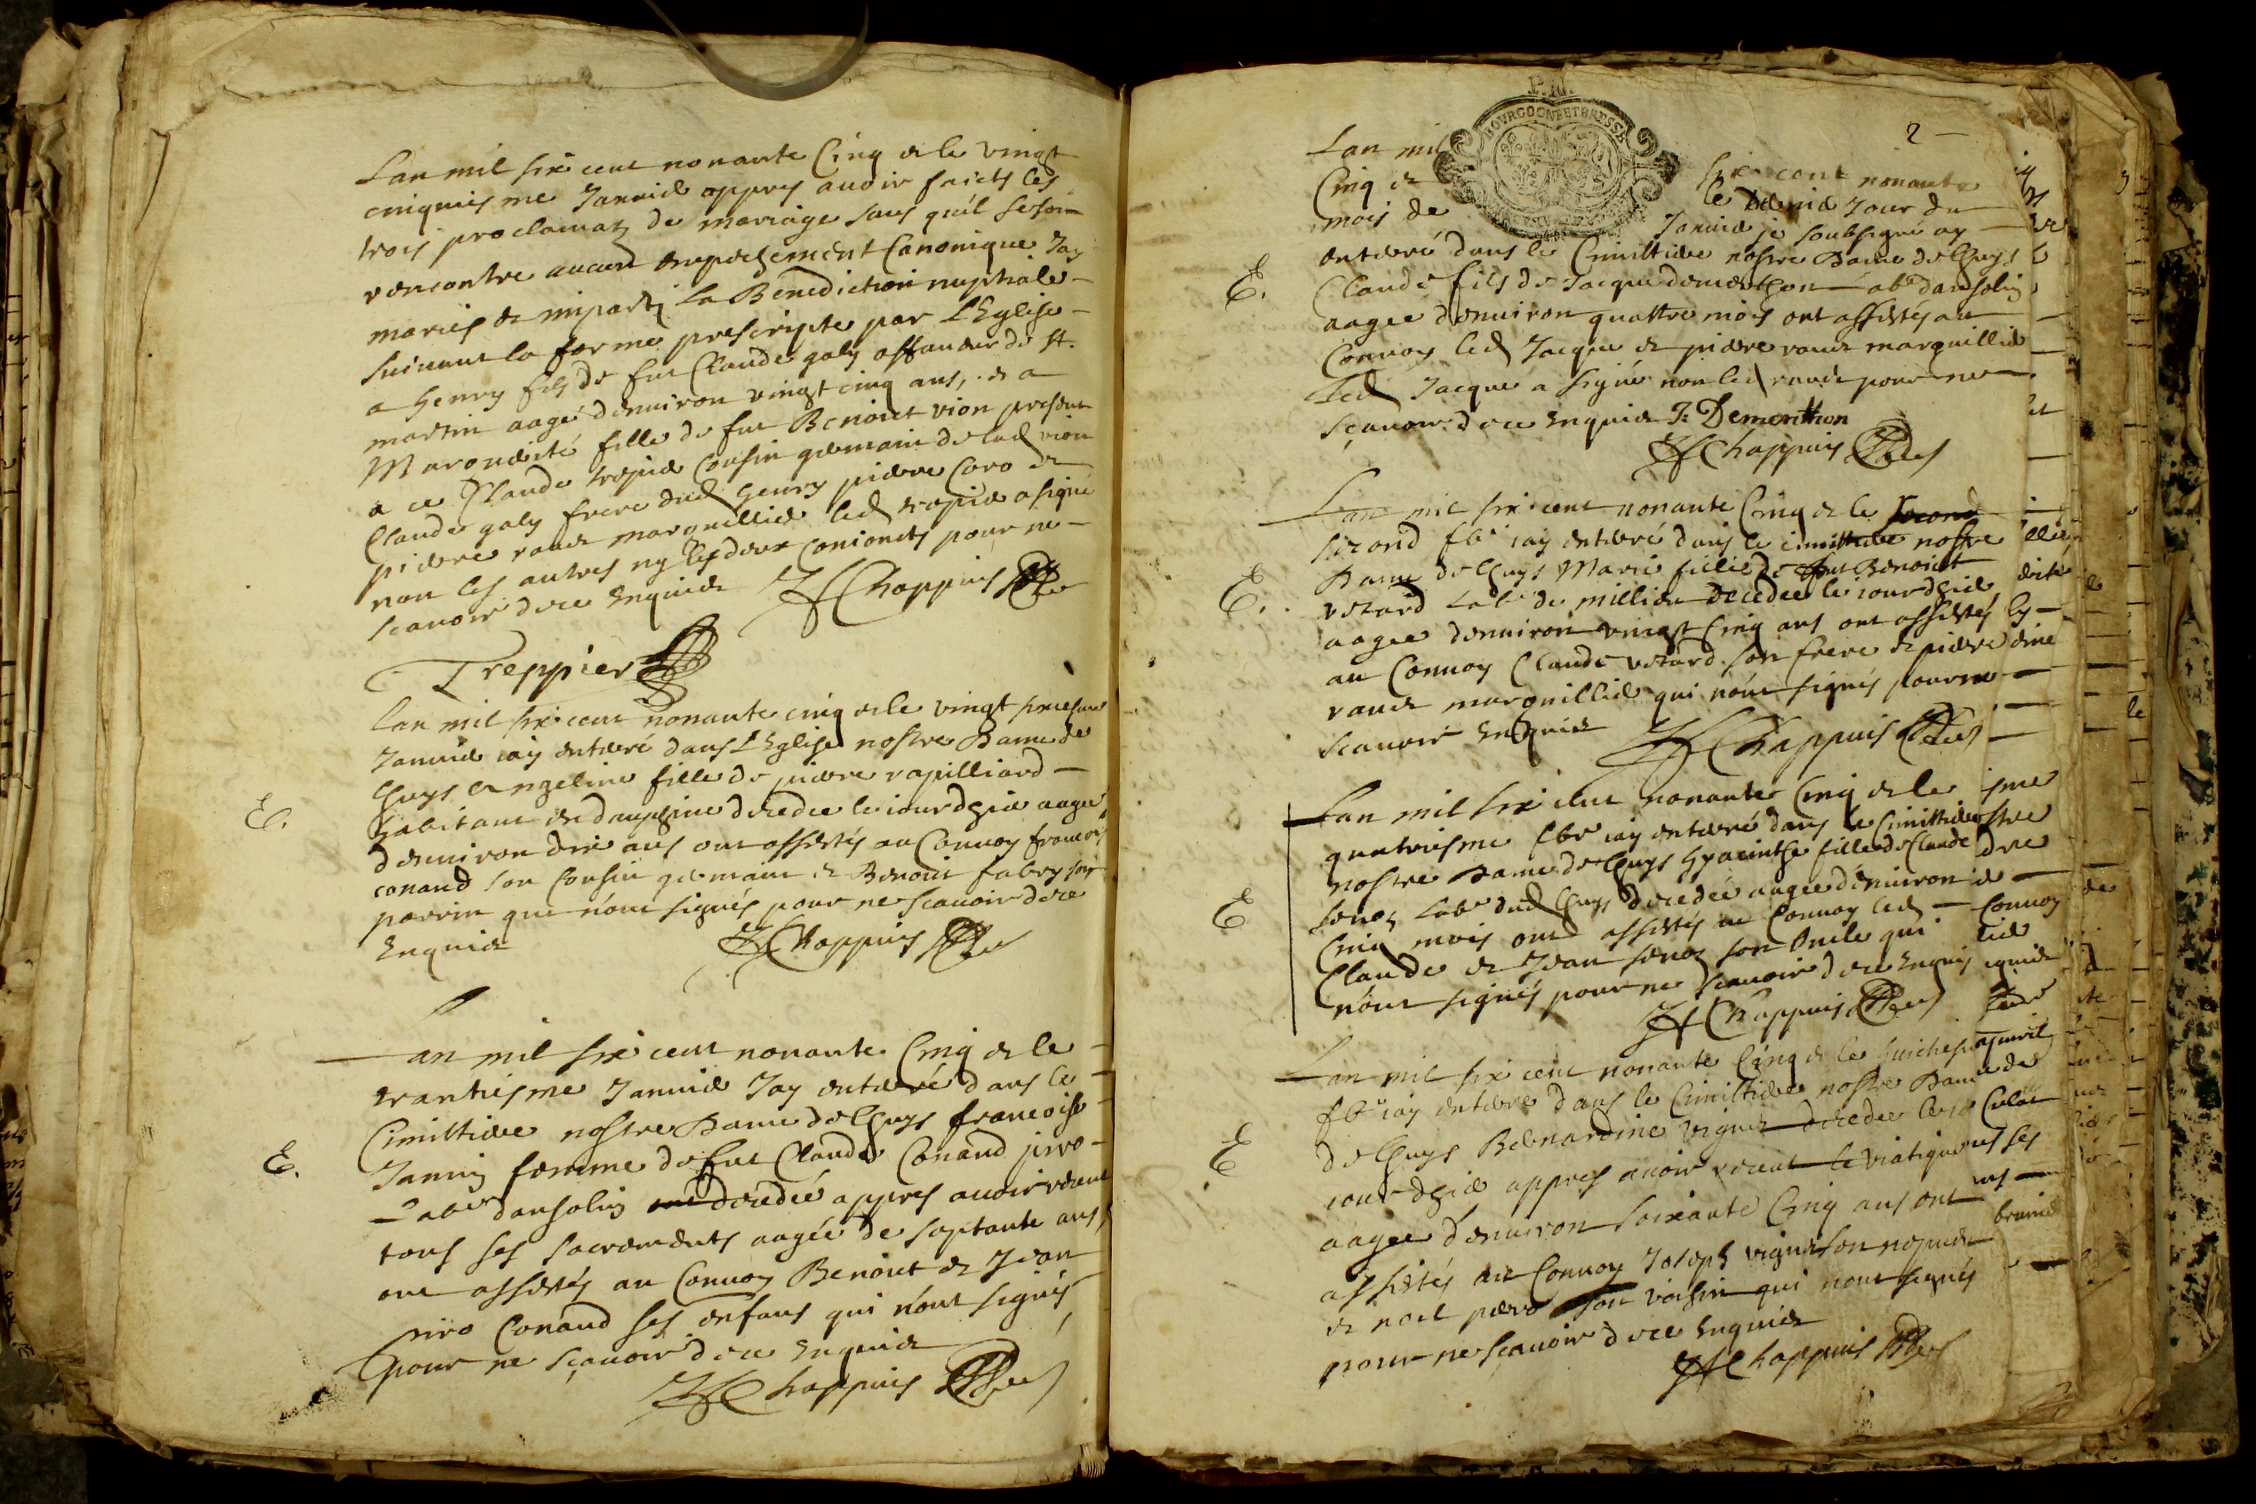 Lan mil six cent nonante Cinq et le vingt
cinquiesme Janvier appres avoir faicts les
trois proclamatz de mariage sans quil se soit
rencontre aucun empechement Canonique Jay
mariés et imparty la Benediction nuptiale
suivant la forme prescripte par L'Eglise
a henry fils de fut Claude galy affaneur de st.
martin aagé d'environ vingt cinq ans, et a
fille de fut Benoict vion present
a ce Claude trepier Cousin germain de lad vion
Claude galy frere dud henry pierre Caro et
pierre ravet marguillier led trepier a signé
non les autres ny les deux conioncts pour ne
scavoir de ce Enquis JH Chappuis
Treppier
Lan mil six cent nonante cinq et le vingt
Janvier iay enterré dans L'Eglise nostre Dame de
Lhuys Angeline fille de pierre rapilliard
habitant en dauphine decedee le iour d'hier aagee
d'environ dix ans ont assistés au Convoy francois
conand son Cousin germain et Benoit fabry son
parrin qui n'ont signés pour ne scavoir de ce
Enquis JH Chappuis
E.
Lan mil six cent nonante Cinq et le
trantiesme Janvier Jay enterré dans le
Cimittiere nostre Dame de Lhuys francoise
Janin femme de fut Claude Conand piro
Lab dansolin decedée appres avoir receut
tous ses sacrements aagée de septante ans
ont assistés au Convoy Benoict et Jean
piro Conand ses enfans qui n'ont signés
pour ne sçavoir de ce Enquis
JH Chappuis
E.
BOVRGOGNE ET BRESSE
2
Lan mil six cent nonante
Cinq et le dernier Jour du
mois de Janvier je soubsigné ay
enterré dans le Cimittiere nostre Dame de Lhuys
E.
Claude fils de Jacque demerthon ab dansolin
aagee d'environ quattre mois ont assistés au
Convoy led Jacque et pierre ravet marguillier
Led Jacque a signé non led ravet pour ne
sçavoir de ce Enquis J. Demerthon
JH Chappuis
Lan mil six cent nonante Cinq et le second
second iay enterré dans le cimittiere nostre
Dame de Lhuys Marie fille de fut Benoict
E.
vezard Lab de millieu decedee le iour d'hier
aagee d'environ vingt Cinq ans ont assistés
au Convoy Claude vezard son frere et pierre
ravet marguillier qui n'ont signés pour ne
scavoir Enquis JH Chappuis
Lan mil six cent nonante Cinq et le
quatriesme iay enterré dans le Cimittiere
nostre Dame de Lhuys hyacinthe fille de Claude
E
Lab dud Lhuys decedée aagee d'environ
Cinq mois ont assistés au Convoy led
Claude et Jean son Oncle qui
n'ont signés pour ne scavoir de ce Enquis
JH Chappuis
Lan mil six cent nonante Cinq et le huictiesme
iay enterré dans le Cimittiere nostre Dame
de Lhuys Bernardine vignet decedee le
E
iour d'hier appres avoir receut le viatique
aagee d'environ soixante Cinq ans ont
assistés au Convoy Joseph vignet son nepveu
et noel son voisin qui n'ont signés
pour ne scavoir de ce Enquis
JH Chappuis